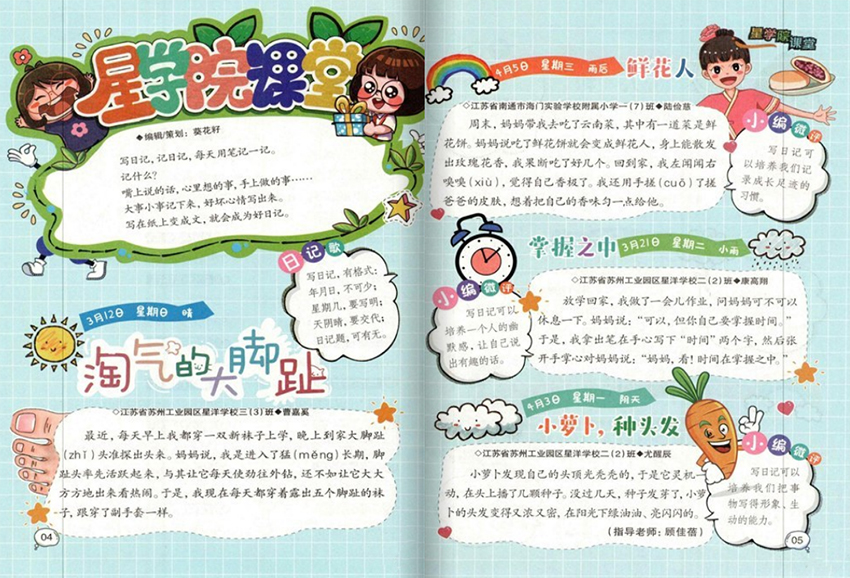 星学院课堂
◆编辑/策划：葵花籽
写日记，记日记，每天用笔记一记。
记什么？
嘴上说的话，心里想的事，手上做的事……
大事小事记下来，好坏心情写出来。
写在纸上变成文，就会成为好日记。
日记歌
写日记，有格式：
年月日，不可少；
星期几，要写明；
天阴晴，要交代；
日记题，可有无。
3月12日 星期日 晴
淘气的大脚趾
◇江苏省苏州工业园区星洋学校三（3）班◆曹嘉奚
最近，每天早上我都穿一双新袜子上学，晚上到家大脚趾
（zhǐ）头准探出头来。妈妈说，我是进入了猛（měng）长期，脚
趾头率先活跃起来，与其让它每天使劲往外钻，还不如让它大大
方方地出来看热闹。于是，我现在每天都穿着露出五个脚趾的袜
子，跟穿了副手套一样。
04
星学院课堂
4月5日 星期三 雨后
鲜花人
◇江苏省南通市海门实验学校附属小学一（7）班◆陆俭慈
周末，妈妈带我去吃了云南菜，其中有一道菜是鲜
花饼。妈妈说吃了鲜花饼就会变成鲜花人，身上能散发
出玫瑰花香，我果断吃了好几个。回到家，我左闻闻右
嗅嗅（xiù），觉得自己香极了。我还用手搓（cuō）了搓
爸爸的皮肤，想着把自己的香味匀一点给他。
小编微评
写日记可
以培养我们记
录成长足迹的
习惯。
掌握之中
3月21日 星期二 小雨
◇江苏省苏州工业园区星洋学校二（2）班◆康高翔
放学回家，我做了一会儿作业，问妈妈可不可以
休息一下。妈妈说：“可以，但你自己要掌握时间。”
于是，我拿出笔在手心写下“时间”两个字，然后张
开手掌心对妈妈说：“妈妈，看！时间在掌握之中。”
小编微评
写日记可以
培养一个人的幽
默感，让自己说
出有趣的话。
4月3日 星期一 阴天
小萝卜，种头发
◇江苏省苏州工业园区星洋学校二（2）班◆尤醒辰
小萝卜发现自己的头顶光秃秃的，于是它灵机一
动，在头上播了几颗种子。没过几天，种子发芽了，小萝
卜的头发变得又浓又密，在阳光下绿油油、亮闪闪的。
（指导老师：顾佳蓓）
小编微评
写日记可以
培养我们把事
物写得形象、生
动的能力。
05